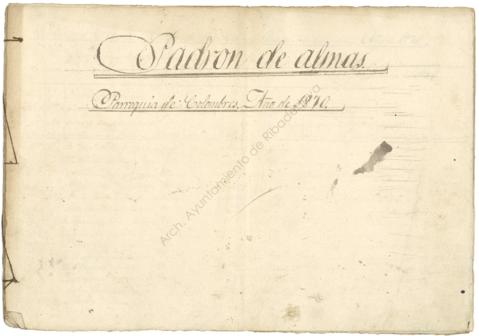 Padron de almas.
Parroquia de Colombres. Año de 1840.
Arch. Ayuntamiento de Ribadedeva